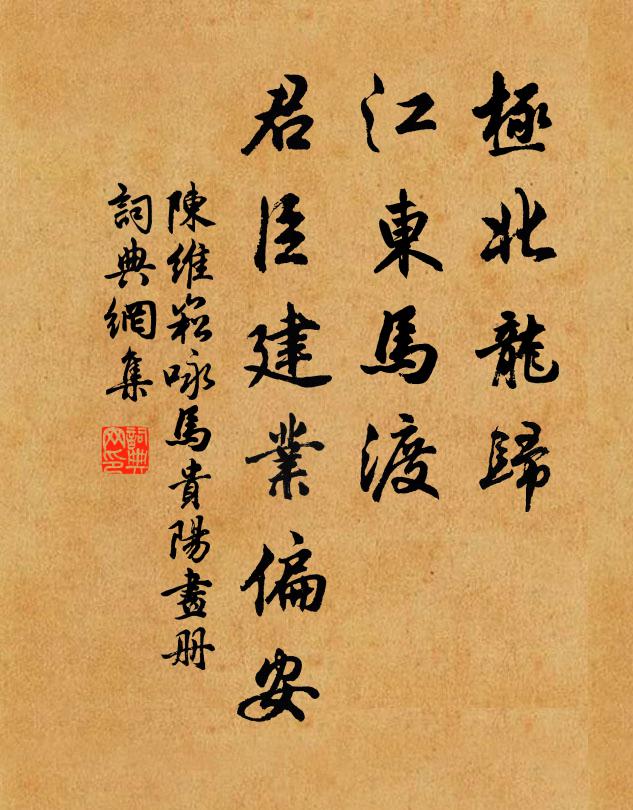 極北龍歸
江東馬渡
君臣建業偏安
陳維崧咏馬貴陽畫册
詞典網集
詞典網印